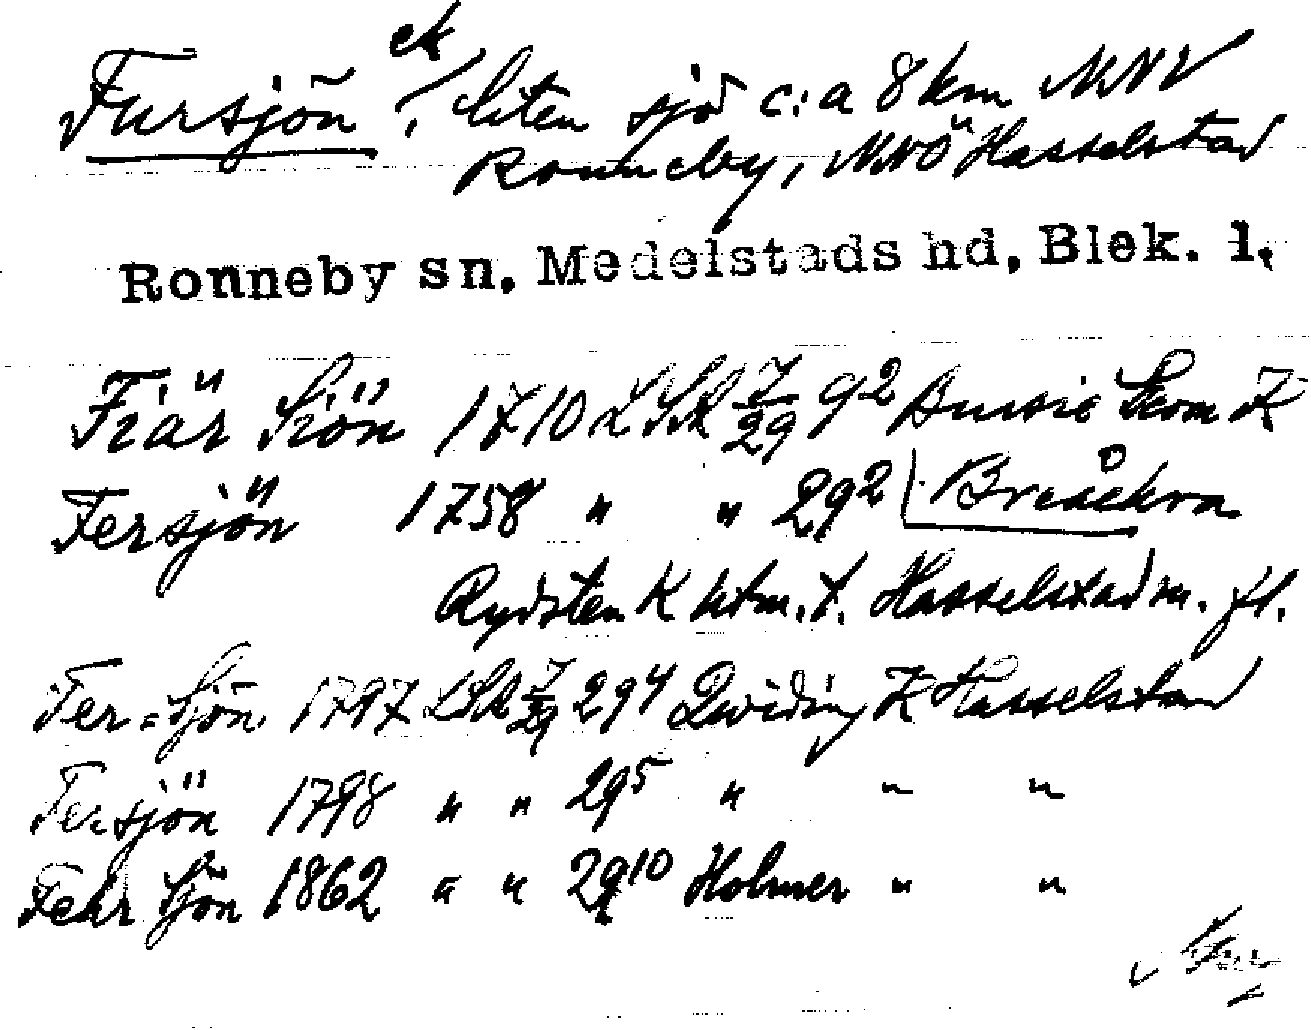 ek
Fursjön, liten sjö c:a 8 km NNV
Ronneby, NNÖ Hasselstad
Ronneby sn, Medelstads hd, Blek. l.
Fiär Siön 1710 LSA 7/29 9² Bussie Kom K
Fersjön 1758 " " 29² Bredåkra
Rydsten K utm. t. Hasselstad m. fl.
Fer=Sjön 1797 LSA 7/29 29⁴ Qwiding K Hasselstad
Fersjön 1798 " " 29⁵ " " "
Fehr Sjön 1862 " " 29¹⁰ Holmer " "